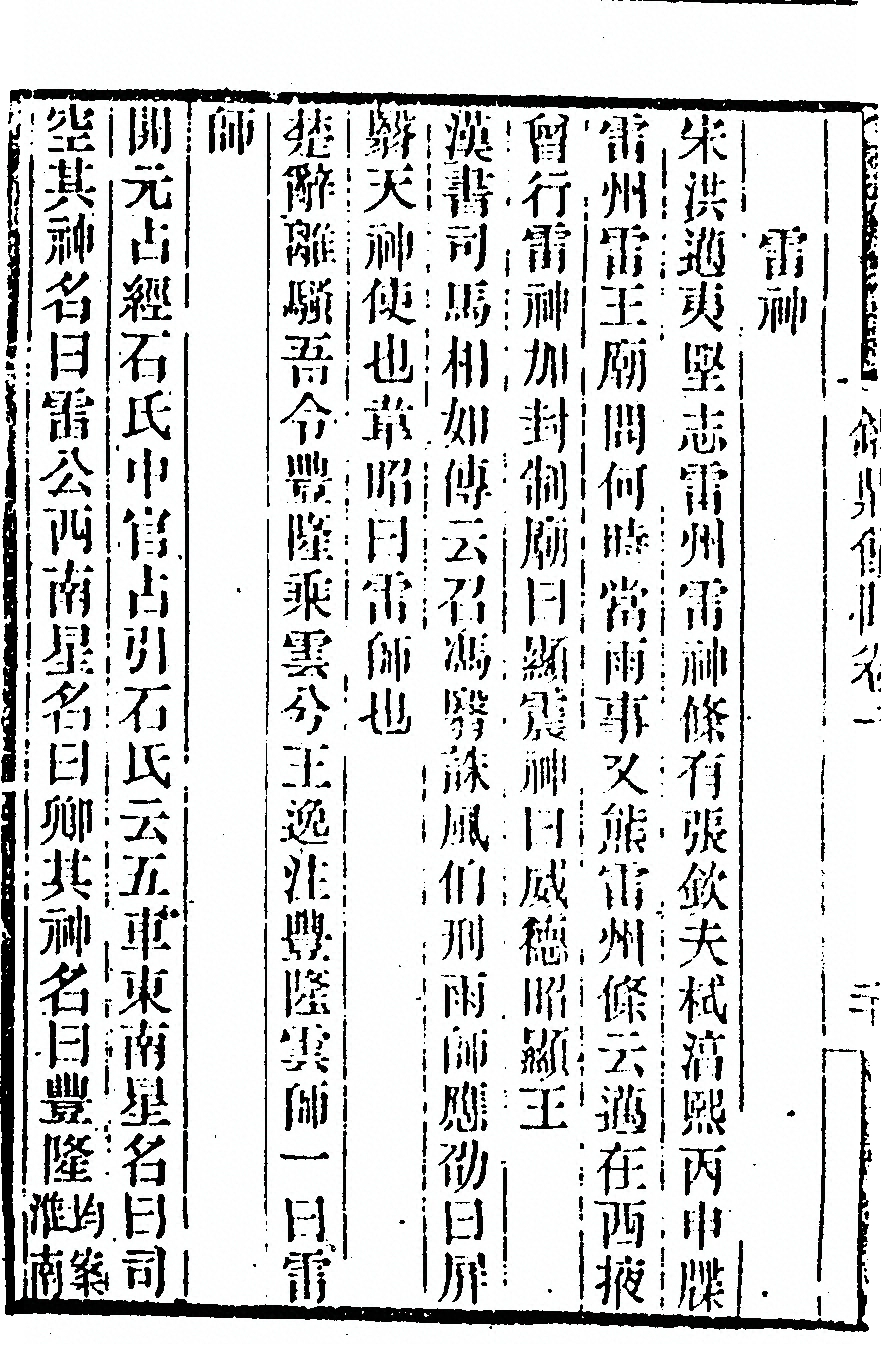 雷神
宋洪邁夷堅志雷州雷神條有張欽夫栻淳熙丙申牒
雷州雷王廟問何時當雨事又熊雷州條云邁在西掖
曾行雷神加封制廟曰顯震神曰威德昭顯王
漢書司馬相如傳云召馮翳誅風伯刑雨師應劭曰屏
翳天神使也韋昭曰雷師也
楚辭離騷吾令豐隆乘雲兮王逸注豐隆雲師一曰雷
師
開元占經石氏中官占引石氏云五車東南星名曰司
空其神名曰雷公西南星名曰卿其神名曰豐隆均案
淮南